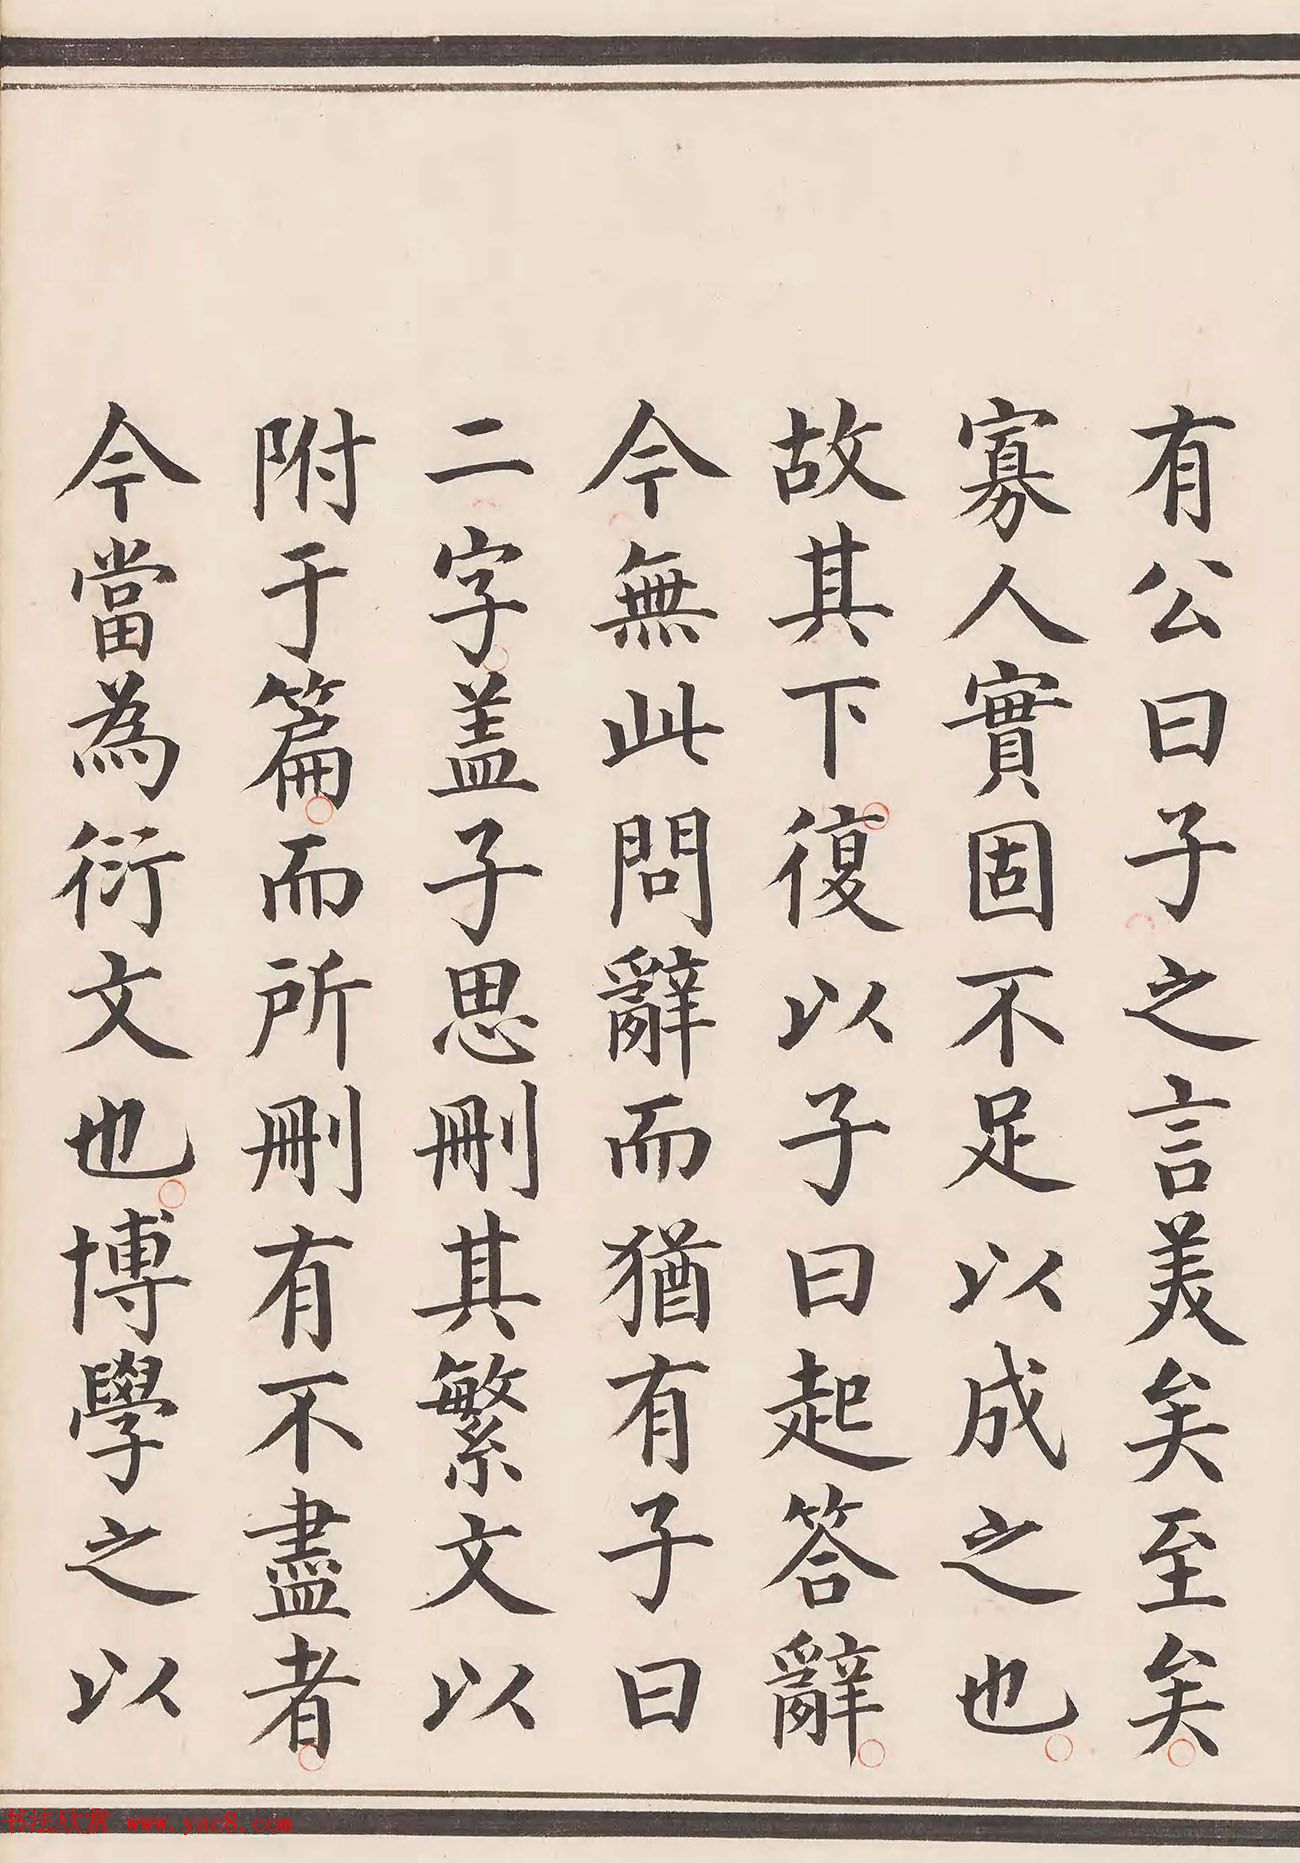 有公曰子之言美矣至矣
寡人實固不足以成之也
故其下復以子曰起答辭
今無此問辭而猶有子曰
二字盖子思刪其繁文以
附于篇而所刪有不盡者
今當為衍文也博學之以
书法欣赏 www.yac8.com